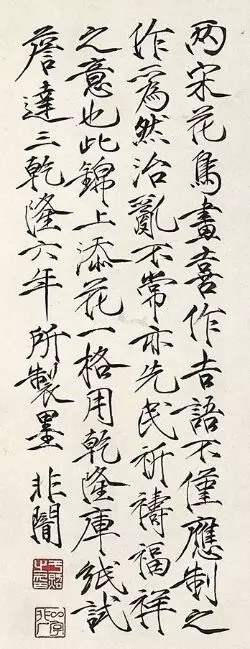 两宋花鸟畫喜作吉語不僅應制之
作為然治亂不常亦先民祈禱福祥
之意也此錦上添花一格用乾隆庫紙試
詹達三乾隆六年所製墨 非闇